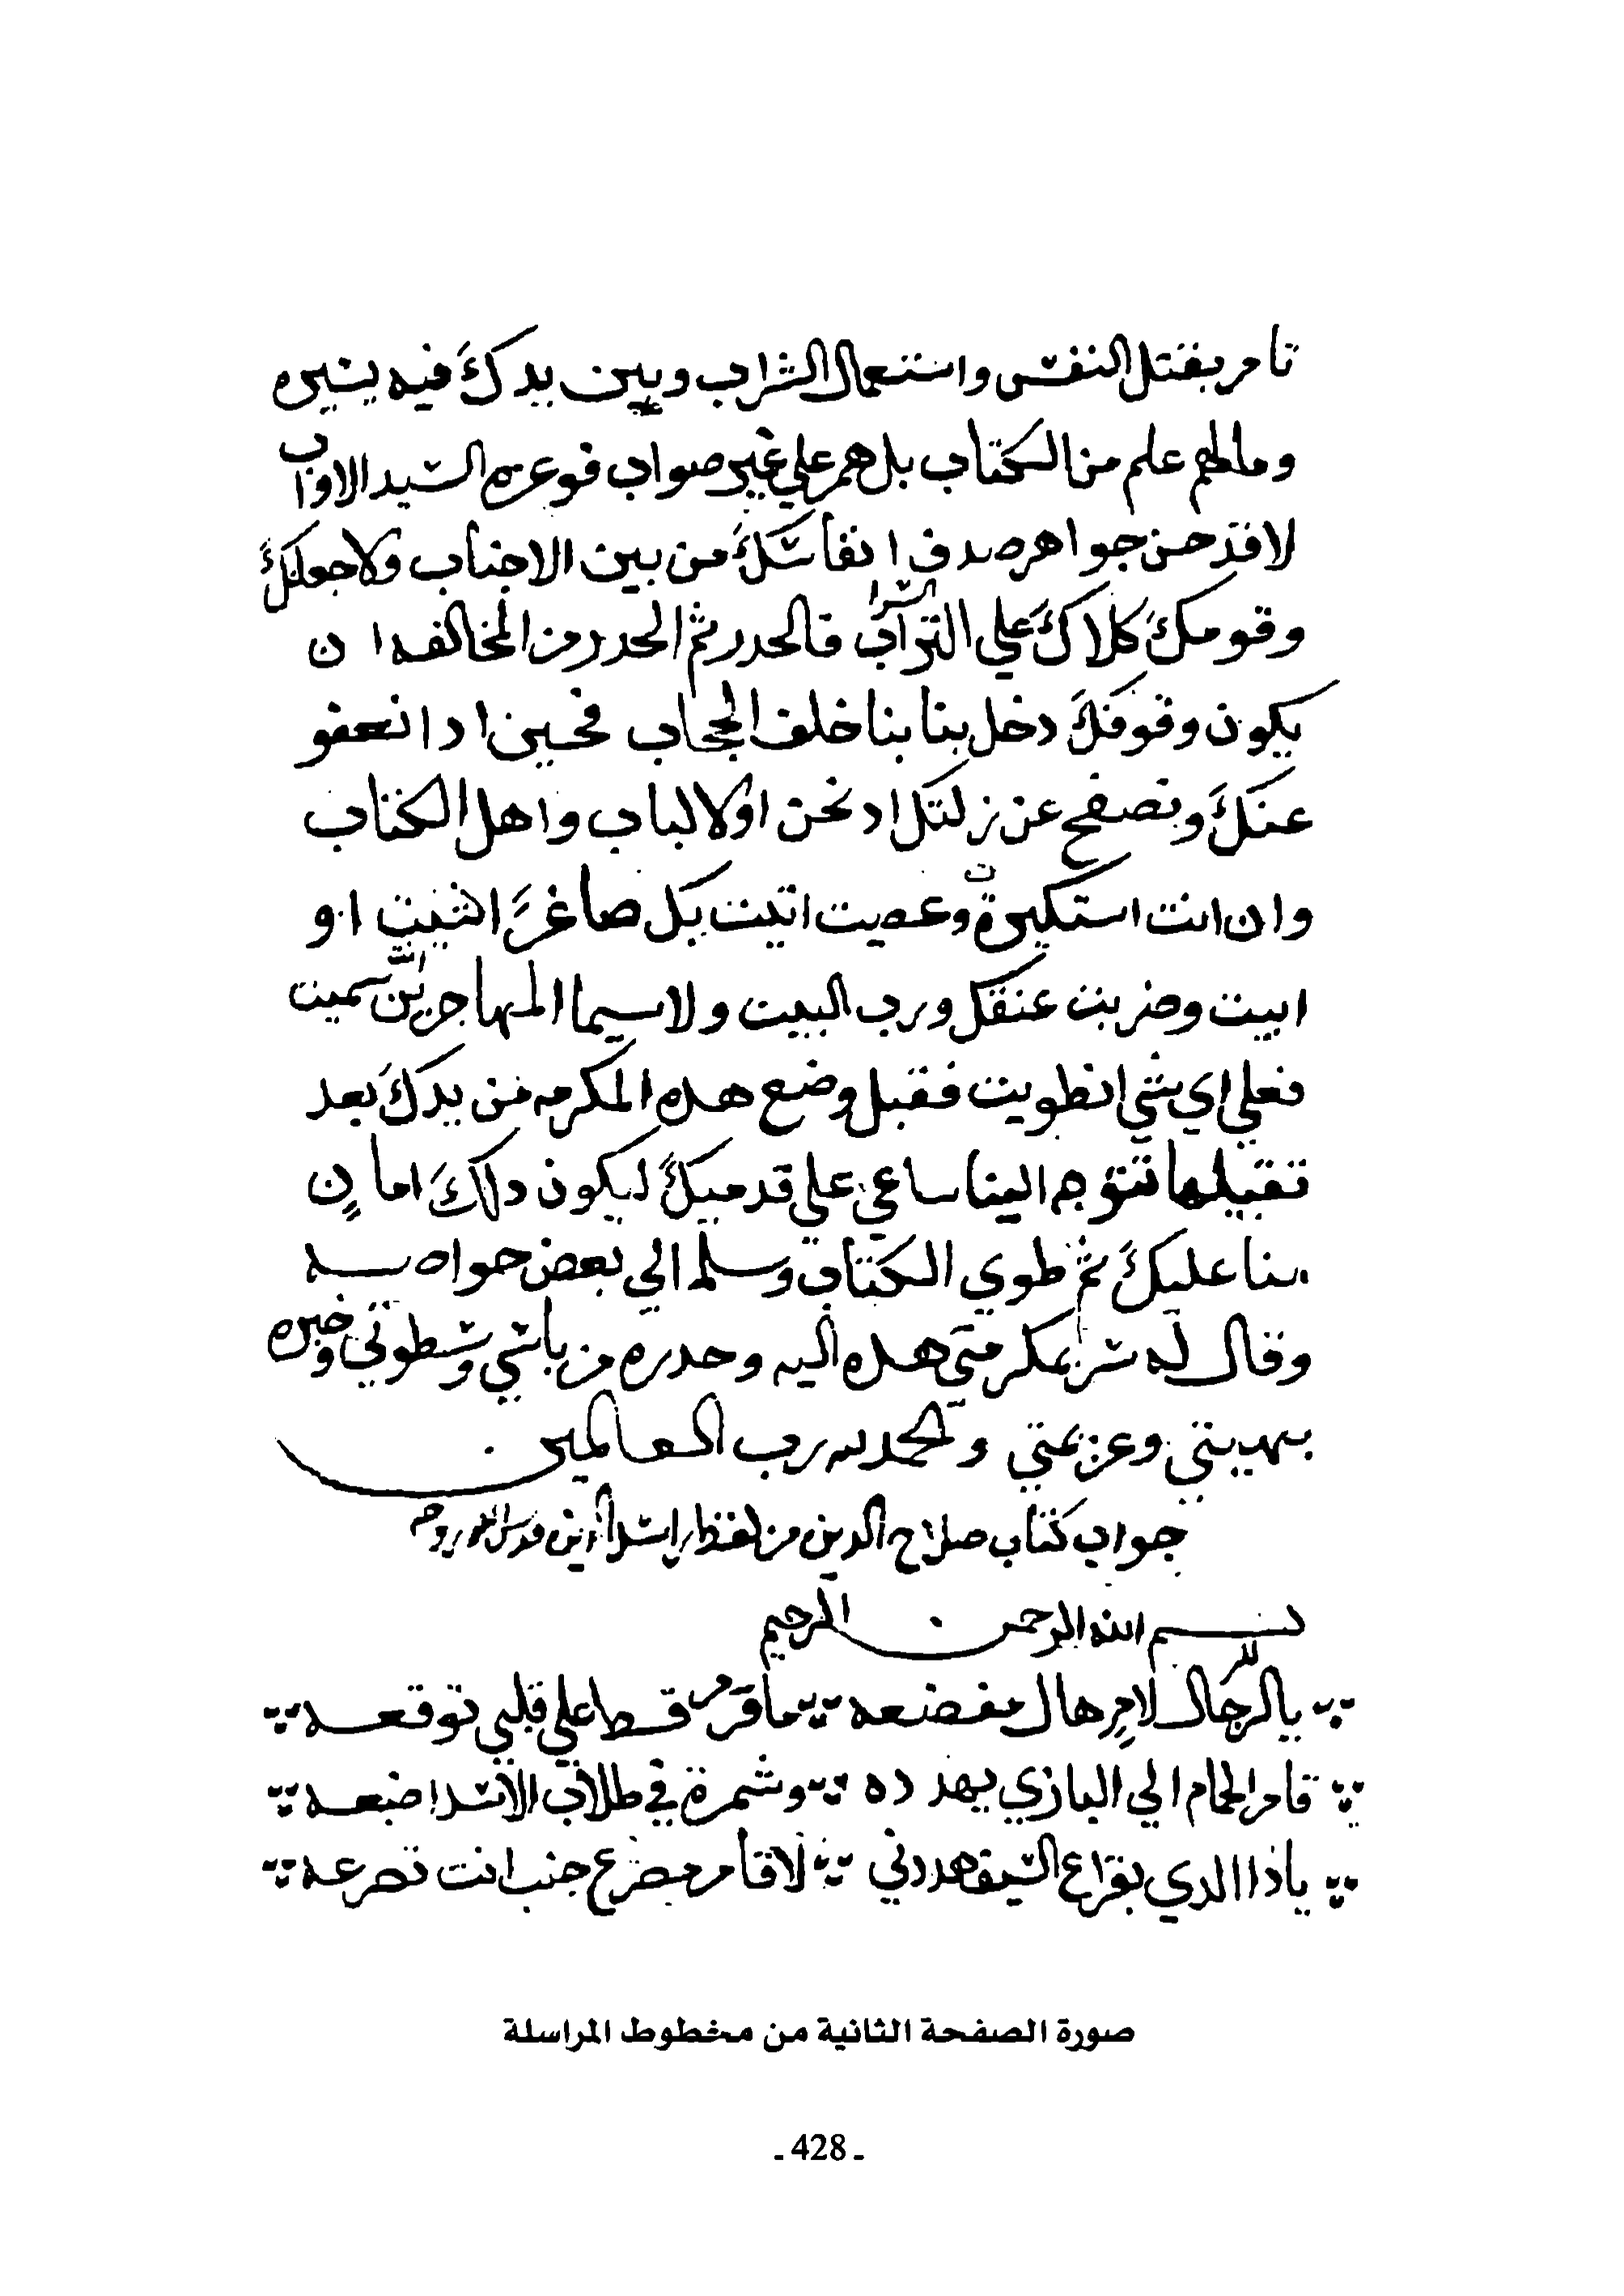 تامر بقتل النفس واستعمال الشراب وبين يدك فيه يشيره
وما لهم علم من الكتاب بل هم علي غير صواب فوعزة السيد الاواب
لاقدحن جواهر صدف انفاسك من بين الاجناب ولاجعلنك
وقومك كلاك علي التراب فالحدر ثم الحدر من المخالفه ان
يكون وقوفك دخل بنا بنا خلف الحجاب فحين ادا نعفو
عنك ونصفح عن زلتك اد نحن اولا لباب واهل الكتاب
وان انت استكبرة وعصيت اتيت بك صاغرً اشيت او
ابيت وضربت عنقك ورب البيت ولا سيما المهاجرين سميت
فعلي اي شي انطويت فقبل وضع هده المكرمه من يدك بعد
تقبيلها تتوجه الينا ساعي علي قدميك ليكون دلك امان
مننا عليك ثم طوي الكتاب وسلم الي بعض حواه سه
وقال له سر بمكرمتي هده اليه وحدره من باسي وسطوتي وخبره
بهيبتي وعزيمتي والحمد لله رب العالمين
جواب كتاب صلاح الدين من لفظ راشد الدين قدس الله روحه
بسم الله الرحمن الرحيم
يا للرجال لامرٍ هال مفضعه ما مر قط علي قلبي توقعه
قام الحمام الي البازي يهدده وشمرة في طلاب الاسد اضبعه
ياذا الدي بقراع السيف هددني لا قام مصرع جنب انت تصرعه
صورة الصفحة الثانية من مخطوط المراسلة
- 428 -